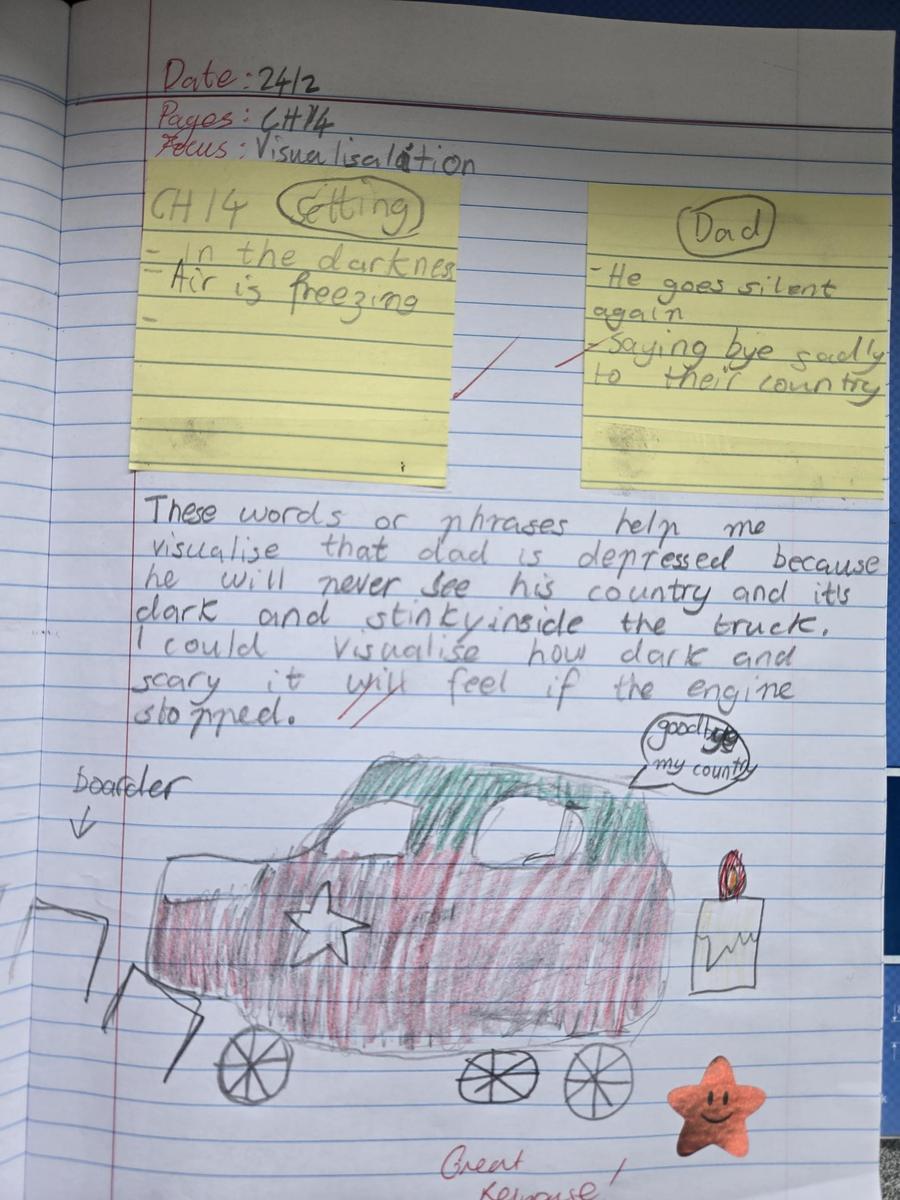 Date: 24/2
Pages: CH14
Focus: Visualisalation
CH 14 Setting
- In the darknes
- Air is freezing
-
Dad
- He goes silent
again
- Saying bye sadly
to their country
These words or phrases help me
visualise that dad is depressed because
he will never see his country and it's
dark and stinky inside the truck.
I could visualise how dark and
scary it will feel if the engine
stopped.
goodbye
my country
boarder
Great
Response!